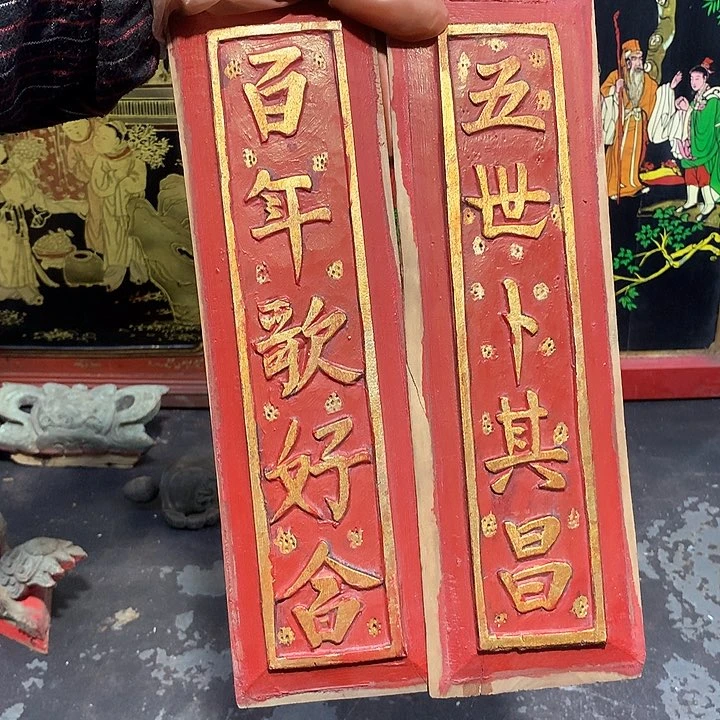 百年歌好合
五世卜其昌